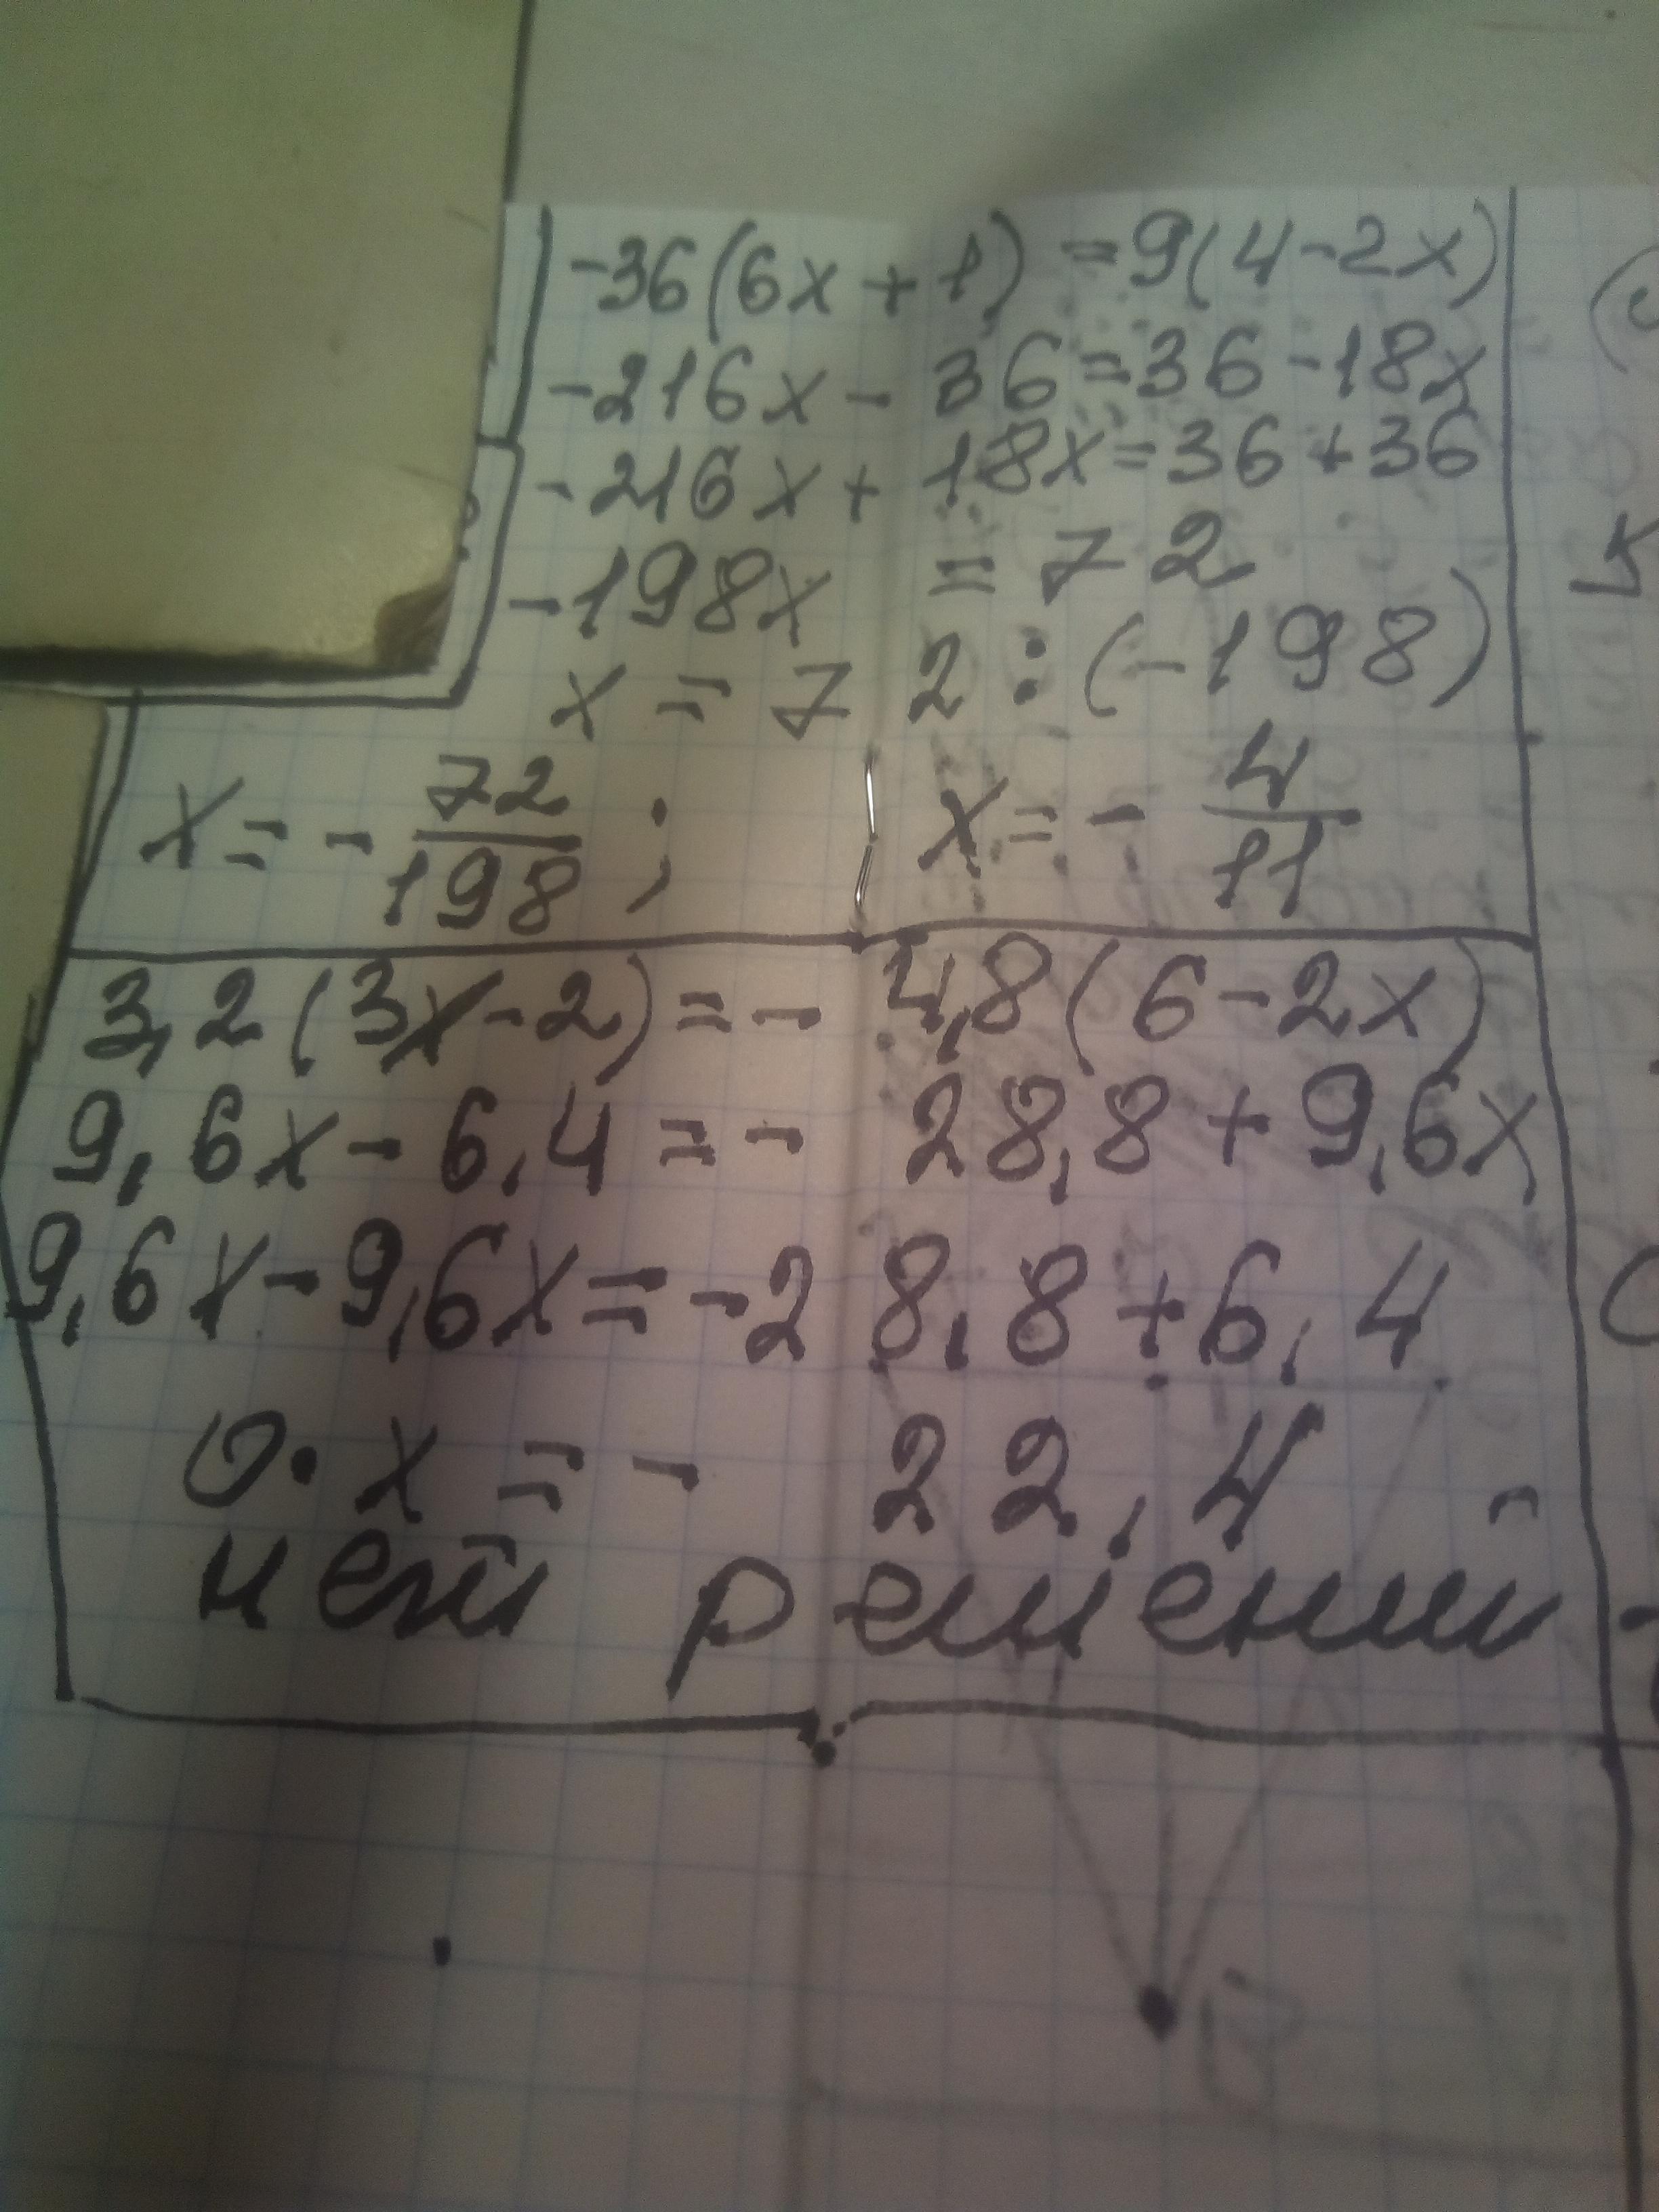 -36(6x+1)=9(4-2x)
-216x-36=36-18x
-216x+18x=36+36
-198x=72
x=72:(-198)
x=-72/198; x=-4/11
3,2(3x-2)=-4,8(6-2x)
9,6x-6,4=-28,8+9,6x
9,6x-9,6x=-28,8+6,4
0·x=-22,4
нет решений